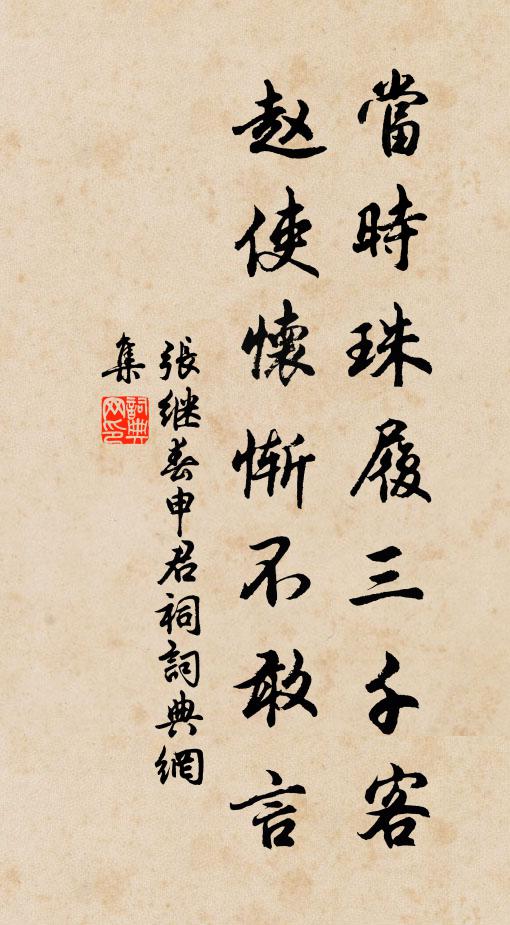 當時珠履三千客
赵使懷慚不敢言
張继春申君祠詞典網
集
詞典网印